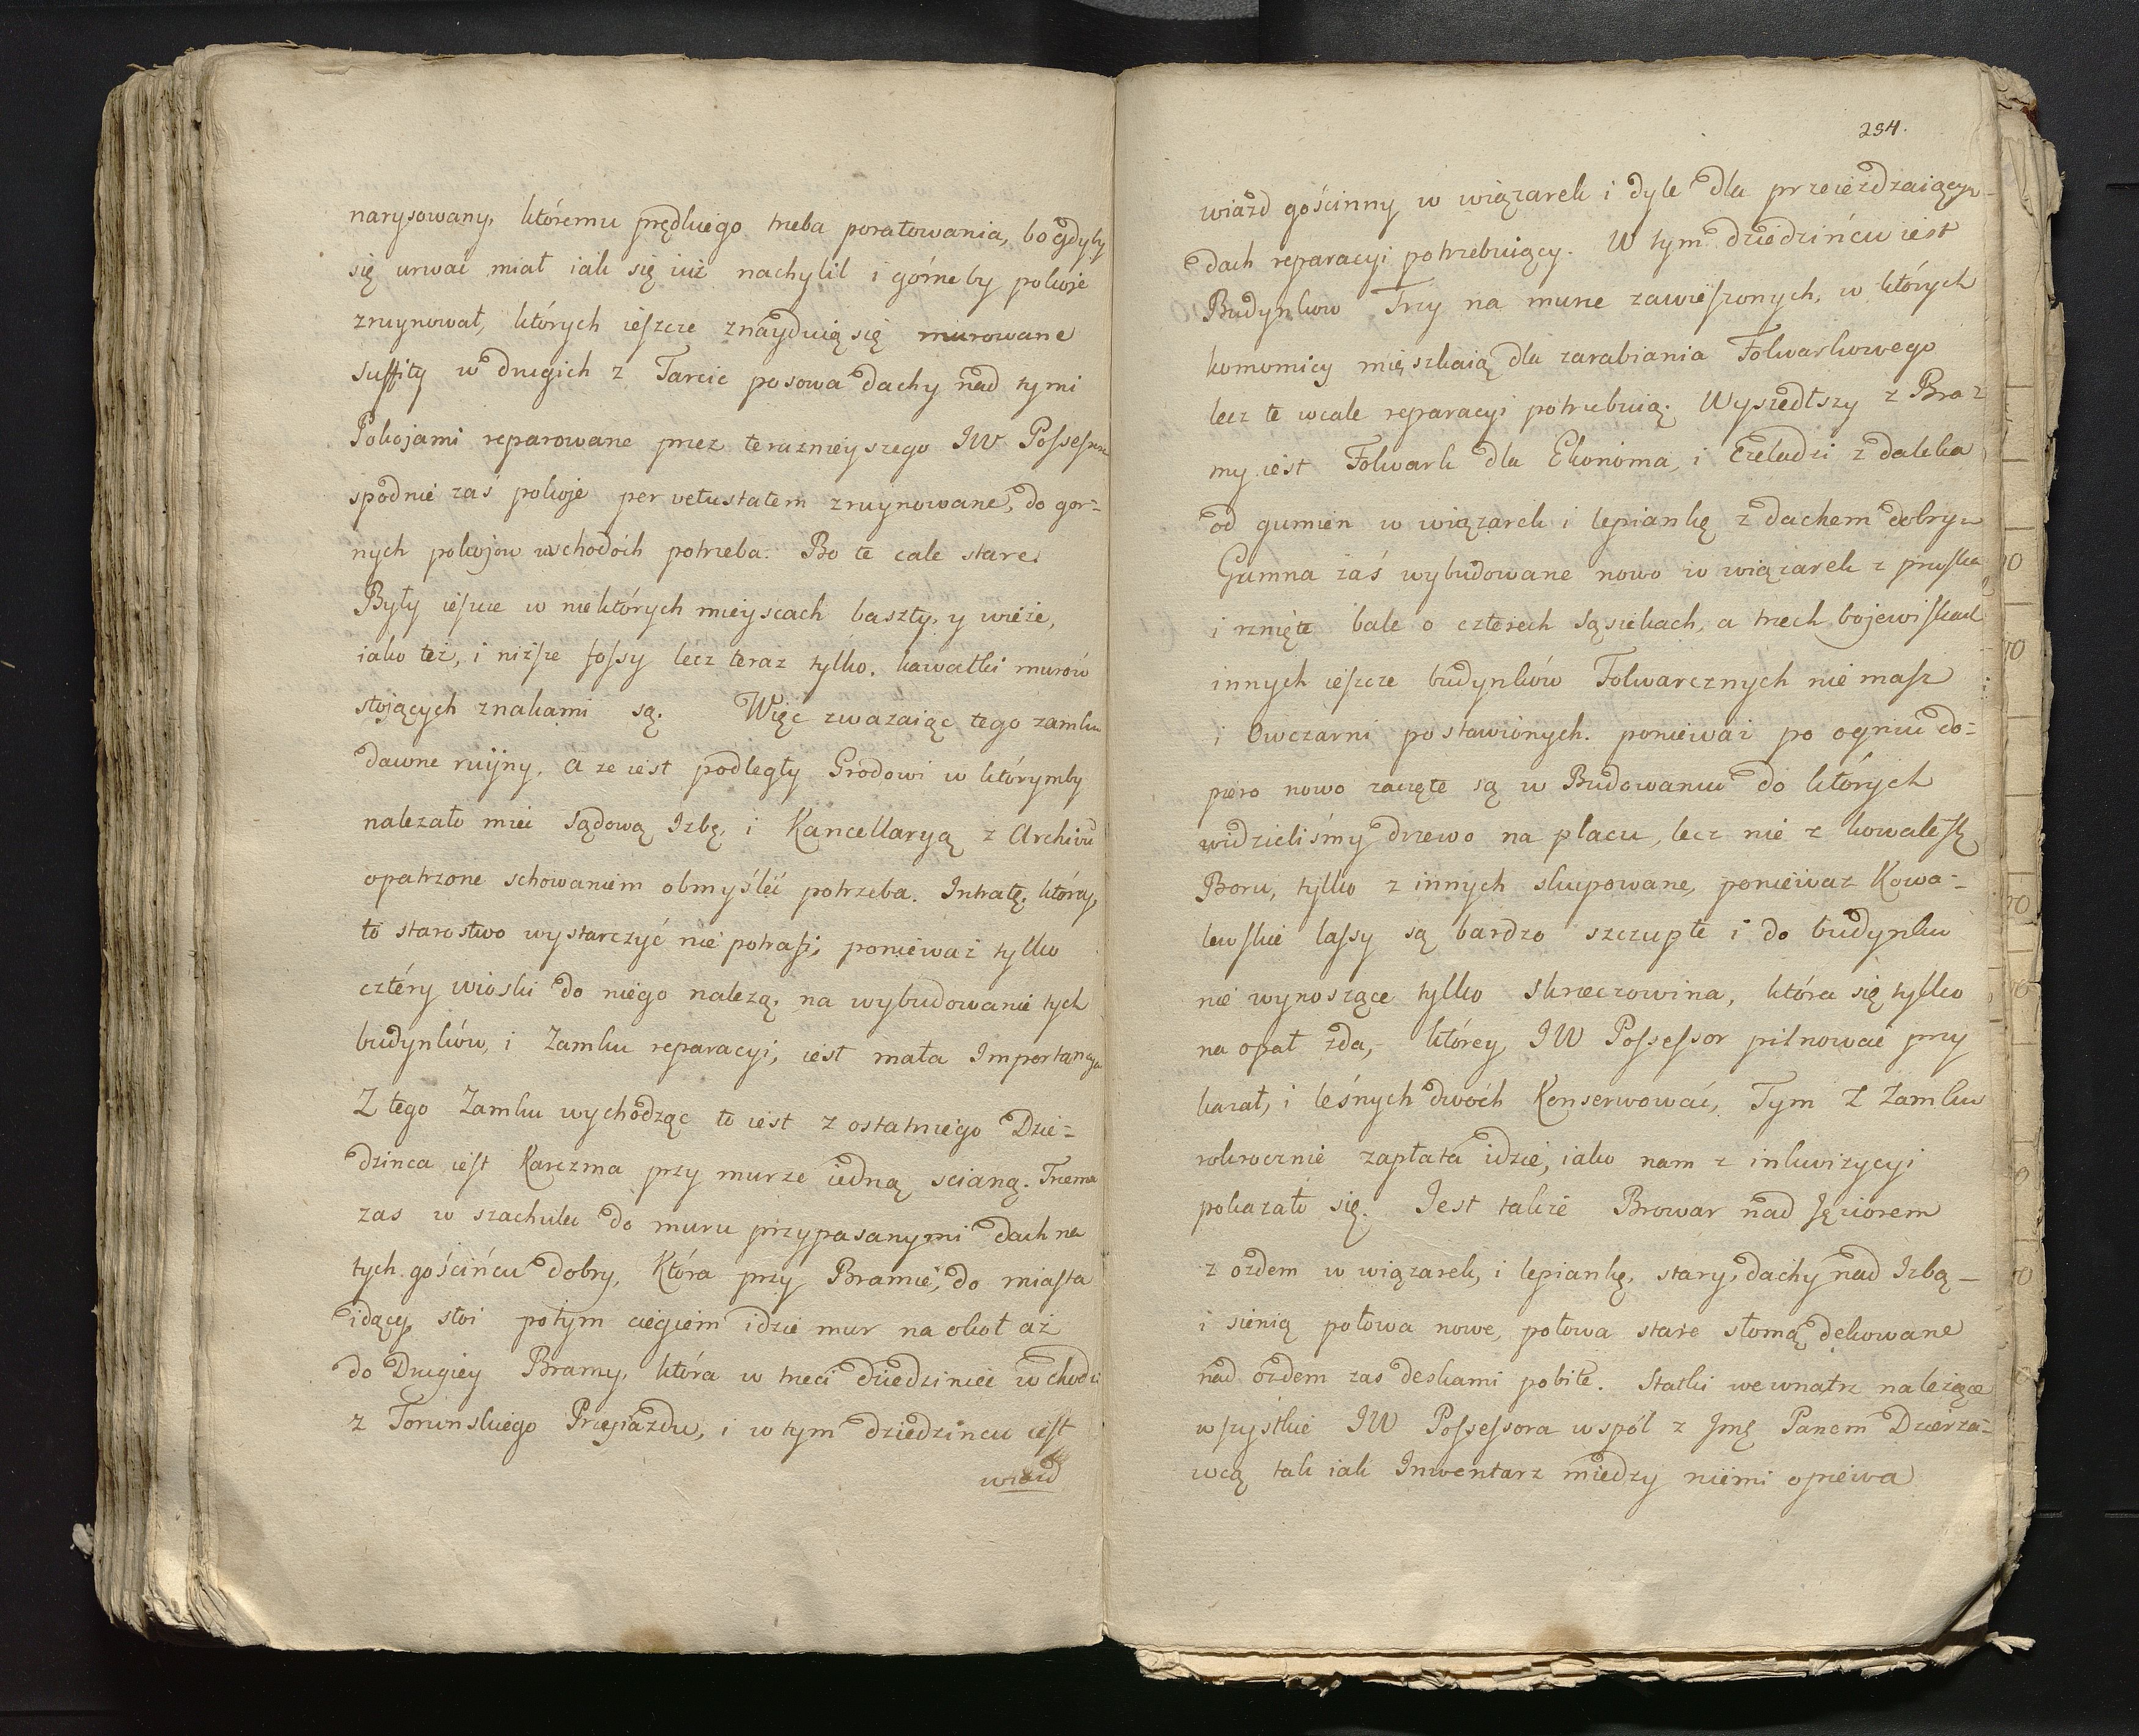 narysowany, któremu prędkiego trzeba poratowania, bo gdyby
się urwać miał iak się iuż nachylił i górneby pokoje
zruynował, których ieszcze znayduią się murowane
suffity w drugich z Tarcic posowa dachy nad tymi
Pokojami reparowane przez teraznieyszego JW Possessora
spodnie zaś pokoje per vetustatem zruynowane, do gor=
nych pokojow wschodóch potrzeba. Bo te cale stare.
Były ieszcze w niektórych mieyscach baszty, y wieże,
iako też, i niższe fossy lecz teraz tylko. kawałki murów
stojących znakami są. Więc zwazaiąc tego zamku
dawne ruijny, a ze iest podległy Grodowi w którymby
nalezało mieć Sądową Izbę, i Kancellaryą z Archivu
opatrzone schowaniem obmyśleć potrzeba. Intratę, którą,
to starostwo wystarczyć nie potrafi, ponieważ tylko
cztéry wioski do niego nalezą, na wybudowanie tych
budynków, i Zamku reparacyi, iest mała Importancya
Z tego Zamku wychodząc to iest z ostatniego Dzie=
dzinca iest Karczma przy murze iedną scianą. Trzema
zas w szachulec do muru przypasanymi dach na
tych gościńcu dobry, Która przy Bramie, do miasta
idącey stoi potym ciegiem idzie mur na okoł aż
do Drugiey Bramy, która w trzeci dziedziniec wchodzi
z Torunskiego Przejazdu, i w tym dziedzincu iest
wiazd
294.
wiazd gościnny w wiązarek i dyle dla przeiezdzaiącyw
dach reparacyi potrzebuiący. W tym dziedzińcu iest
Budynkow Trzy na murze zawieszonych, w których
komornicy mięszkaią dla zarabiania Folwarkowego
lecz te wcale reparacyi potrzebuią. Wyszedłszy z Bra=
my iest Folwark dla Ekonoma, i Czeladzi z daleka
od gumien w wiązarek i lepiankę z dachem dobrym
Gumna zaś wybudowane nowo w wiązarek z pruska
i rznięte bale o czterech sąsiekach, a trzech bojewiskach
innych ieszcze budynków Folwarcznych nie masz
i Owczarni postawionych. ponieważ po ogniu do=
piero nowo zaczęte są w Budowaniu do których
widzieliśmy drzewo na placu, lecz nie z kowalesk
Boru, tylko z innych skupowane, ponieważ Kowa=
lewskie lassy są bardzo szczupłe i do budynku
nie wynoszące tylko skrzeczowina, która się tylko
na opał zda,- którey JW Possessor pilnować przy
kazał, i leśnych dwóch Konserwować, Tym z Zamku
rokrocznie zapłata idzie, iako nam z inkwizycyi
pokazało się. Jest także Browar nad Jęziorem
z ozdem w wiązarek, i lepiankę, stary, dachy nad Izbą —
i sienią połowa nowe, połowa stare słomą dekowane
nad ozdem zas deskami pobite. Statki wewnątrz należące
wszystkie JW Possessora wspól z Jmę Panem Dzierza=
wcą tak iak Inwentarz miedzy niemi opiewa